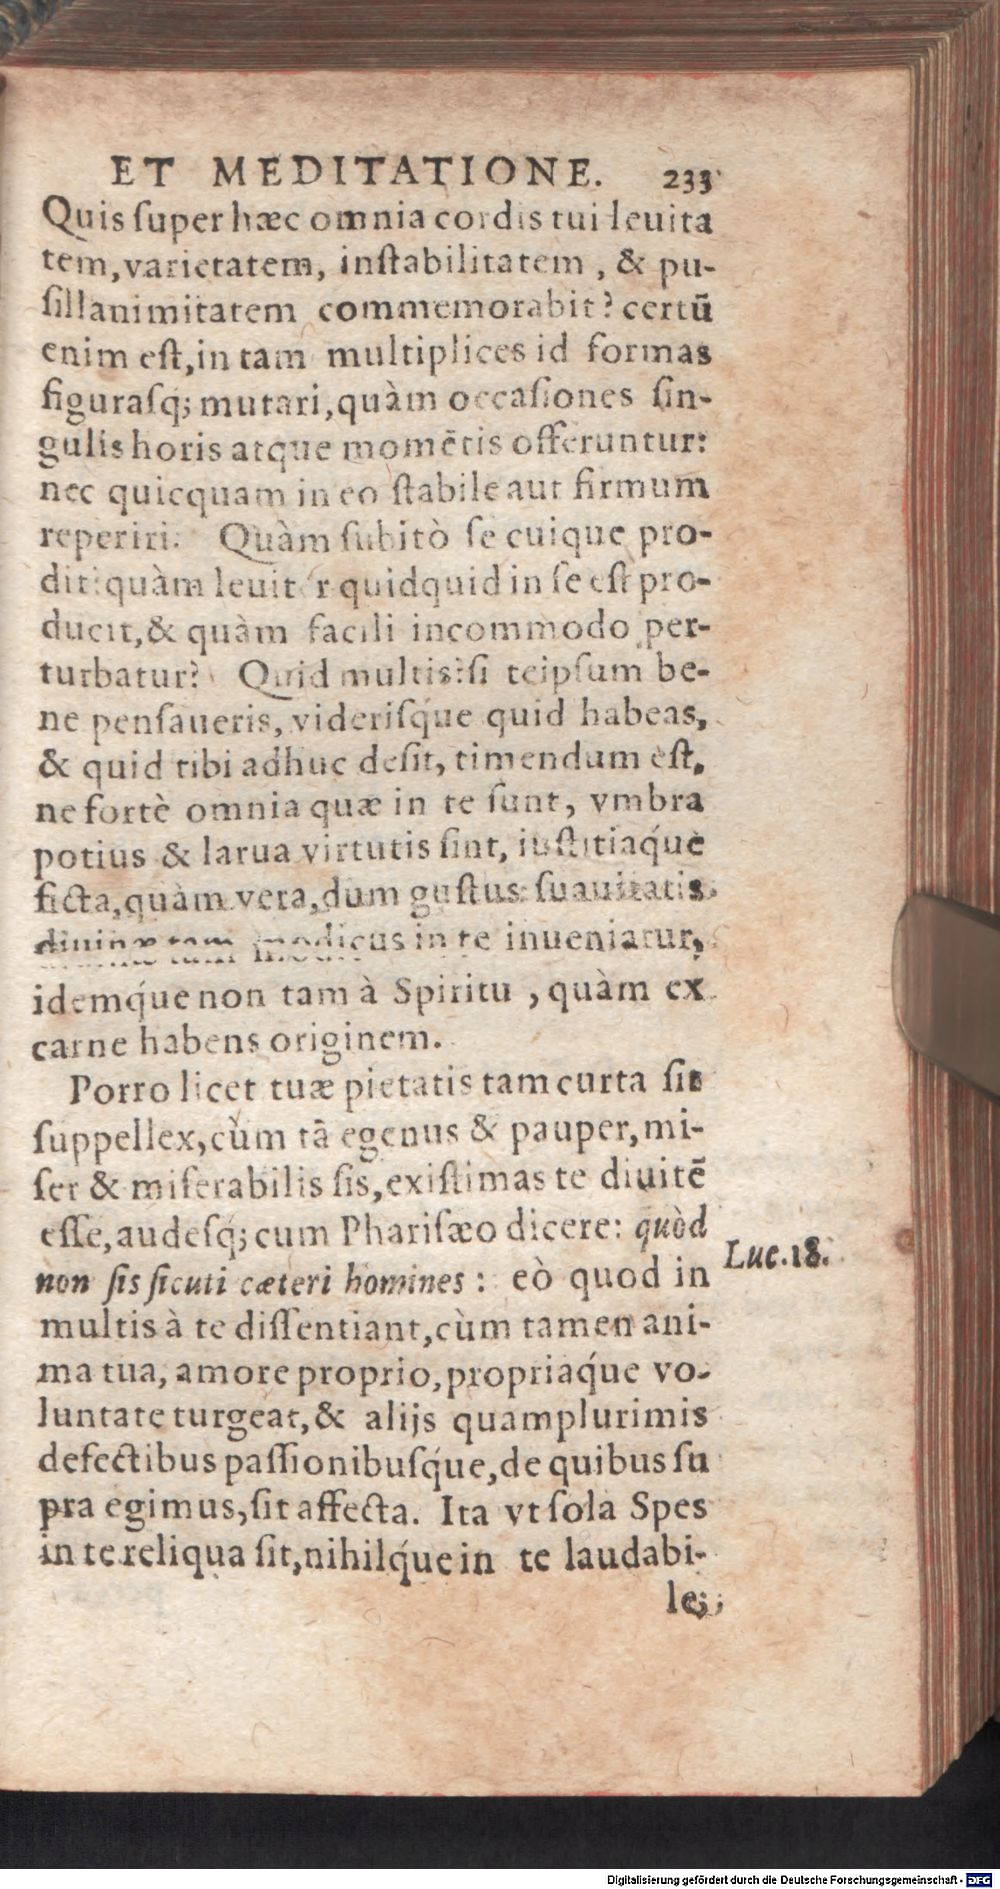 ET MEDITATIONE. 233
Quis ſuper hæc omnia cordis tui leuita
tem, varietatem, inſtabilitatem, & pu-
ſillanimitatem commemorabit? certū
enim eſt, in tam multiplices id formas
figuraſq; mutari, quàm occaſiones ſin-
gulis horis atque momẽtis offeruntur:
nec quicquam in eo ſtabile aut firmum
reperiri. Quàm ſubitò ſe cuique pro-
dit: quàm leuiter quidquid in ſe eſt pro-
ducit, & quàm facili incommodo per-
turbatur? Quid multis: ſi teipſum be-
ne penſaueris, videriſq́ue quid habeas,
& quid tibi adhuc deſit, timendum eſt,
ne fortè omnia quæ in te ſunt, vmbra
potius & larua virtutis ſint, iuſtitiaq́ue
ficta, quàm vera, dum guſtus ſuauitatis
diuinæ tam modicus in te inueniatur,
idemq́ue non tam à Spiritu, quàm ex
carne habens originem.
Porro licet tuæ pietatis tam curta ſit
ſuppellex, cùm tā egenus & pauper, mi-
ſer & miſerabilis ſis, exiſtimas te diuitē
eſſe, audeſq; cum Phariſæo dicere: quòd
Luc. 18.
non ſis ſicuti cæteri homines: eò quod in
multis à te diſſentiant, cùm tamen ani-
ma tua, amore proprio, propriaq́ue vo-
luntate turgeat, & alijs quamplurimis
defectibus paſſionibuſq́ue, de quibus ſu
pra egimus, ſit affecta. Ita vt ſola Spes
in te reliqua ſit, nihilq́ue in te laudabi-
le;
Digitalisierung gefördert durch die Deutsche Forschungsgemeinschaft - DFG